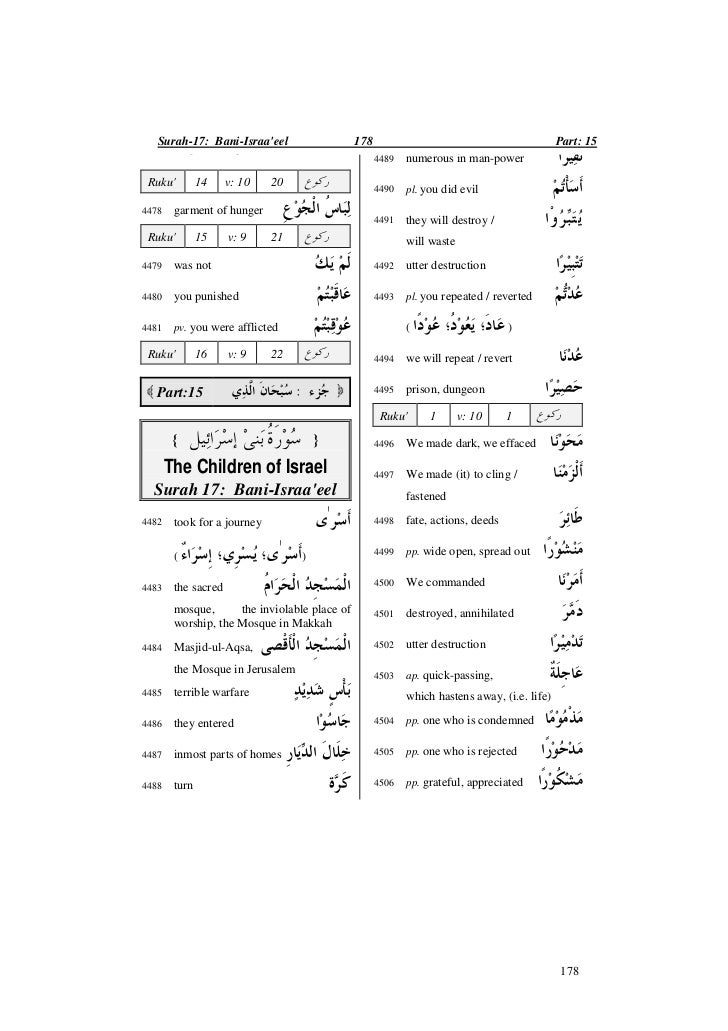 Surah-17: Bani-Israa'eel 178 Part: 15
Ruku' 14 v: 10 20 ركوع
4478 garment of hunger لِبَاسُ الْجُوْعِ
Ruku' 15 v: 9 21 ركوع
4479 was not لَمْ يَكُ
4480 you punished عَاقَبْتُمْ
4481 pv. you were afflicted عُوْقِبْتُمْ
Ruku' 16 v: 9 22 ركوع
﴾ Part:15 جُزء : سُبْحَانَ الَّذِي ﴿
{ سُوْرَةُ بَنِىْ إِسْرَائِيل }
The Children of Israel
Surah 17: Bani-Israa'eel
4482 took for a journey أَسْرٰى
(أَسْرٰى؛ يُسْرِي؛ إِسْرَاءٌ )
4483 the sacred الْمَسْجِدُ الْحَرَامُ
mosque, the inviolable place of
worship, the Mosque in Makkah
4484 Masjid-ul-Aqsa, الْمَسْجِدُ الْأَقْصَى
the Mosque in Jerusalem
4485 terrible warfare بَأْسٍ شَدِيْدٍ
4486 they entered جَاسُوْا
4487 inmost parts of homes خِلَالَ الدِّيَارِ
4488 turn كَرَّةَ
4489 numerous in man-power نَفِيْرًا
4490 pl. you did evil أَسَأْتُمْ
4491 they will destroy / يُتَبِّرُوْا
will waste
4492 utter destruction تَتْبِيْرًا
4493 pl. you repeated / reverted عُدْتُّمْ
( عَادَ؛ يَعُوْدُ؛ عُوْدًا )
4494 we will repeat / revert عُدْنَا
4495 prison, dungeon حَصِيْرًا
Ruku' 1 v: 10 1 ركوع
4496 We made dark, we effaced مَحَوْنَا
4497 We made (it) to cling / أَلْزَمْنَا
fastened
4498 fate, actions, deeds طَائِرَ
4499 pp. wide open, spread out مَنْشُوْرًا
4500 We commanded أَمَرْنَا
4501 destroyed, annihilated دَمَّرَ
4502 utter destruction تَدْمِيْرًا
4503 ap. quick-passing, عَاجِلَةٌ
which hastens away, (i.e. life)
4504 pp. one who is condemned مَذْمُوْمًا
4505 pp. one who is rejected مَدْحُوْرًا
4506 pp. grateful, appreciated مَشْكُوْرًا
178